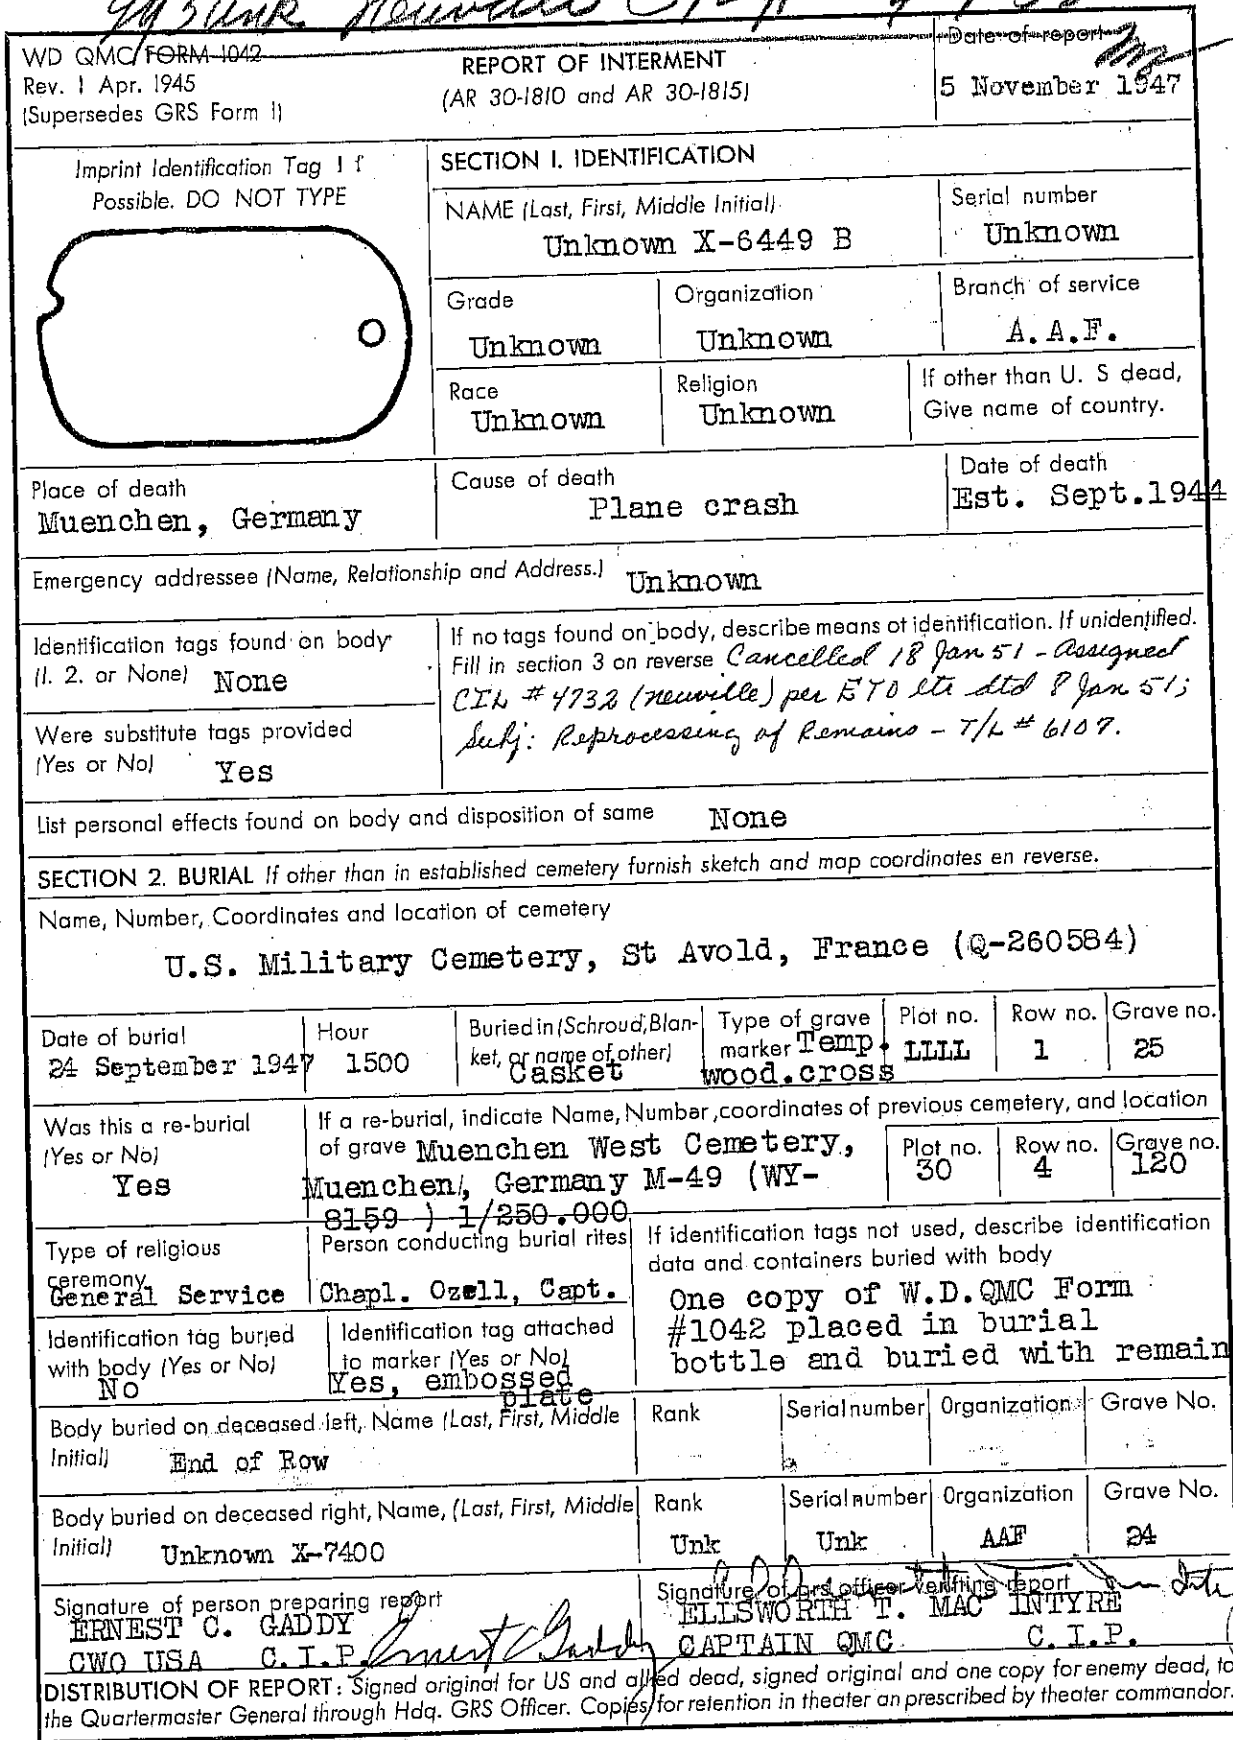 WD QMC FORM 1042
Rev. 1 Apr. 1945
(Supersedes GRS Form 1)
REPORT OF INTERMENT
(AR 30-1810 and AR 30-1815)
Date of report
5 November 1947
Imprint Identification Tag If
Possible. DO NOT TYPE
SECTION I. IDENTIFICATION
NAME (Last, First, Middle Initial)
Unknown X-6449 B
Serial number
Unknown
Grade
Unknown
Organization
Unknown
Branch of service
A.A.F.
Race
Unknown
Religion
Unknown
If other than U. S dead,
Give name of country.
Place of death
Muenchen, Germany
Cause of death
Plane crash
Date of death
Est. Sept.1944
Emergency addressee (Name, Relationship and Address.) Unknown
Identification tags found on body
(1. 2. or None) None
If no tags found on body, describe means of identification. If unidentified.
Fill in section 3 on reverse Cancelled 18 Jan 51 - Assigned
CIL # 4732 (Neuville) per ETO ltr dtd 8 Jan 51;
Subj: Reprocessing of Remains - T/L # 6107.
Were substitute tags provided
(Yes or No) Yes
List personal effects found on body and disposition of same None
SECTION 2. BURIAL If other than in established cemetery furnish sketch and map coordinates en reverse.
Name, Number, Coordinates and location of cemetery
U.S. Military Cemetery, St Avold, France (Q-260584)
Date of burial
24 September 1947
Hour
1500
Buried in (Schroud, Blan-
ket, or name of other)
Casket
Type of grave
marker Temp.
wood.cross
Plot no.
LLLL
Row no.
1
Grave no.
25
Was this a re-burial
(Yes or No)
Yes
If a re-burial, indicate Name, Number, coordinates of previous cemetery, and location
of grave Muenchen West Cemetery,
Muenchen, Germany M-49 (WY-
8159 ) 1/250.000
Plot no.
30
Row no.
4
Grave no.
120
Type of religious
ceremony
General Service
Person conducting burial rites
Chapl. Ozell, Capt.
If identification tags not used, describe identification
data and containers buried with body
One copy of W.D.QMC Form
#1042 placed in burial
bottle and buried with remain
Identification tag buried
with body (Yes or No)
No
Identification tag attached
to marker (Yes or No)
Yes, embossed
plate
Body buried on deceased left, Name (Last, First, Middle
Initial) End of Row
Rank
Serial number
Organization
Grave No.
Body buried on deceased right, Name, (Last, First, Middle
Initial) Unknown X-7400
Rank
Unk
Serial number
Unk
Organization
AAF
Grave No.
24
Signature of person preparing report
ERNEST C. GADDY
CWO USA C.I.P. Ernest C Gaddy
Signature of grs officer verifying report
ELLSWORTH T. MAC INTYRE
CAPTAIN QMC C.I.P.
DISTRIBUTION OF REPORT: Signed original for US and allied dead, signed original and one copy for enemy dead, to
the Quartermaster General through Hdq. GRS Officer. Copies for retention in theater an prescribed by theater commandor.